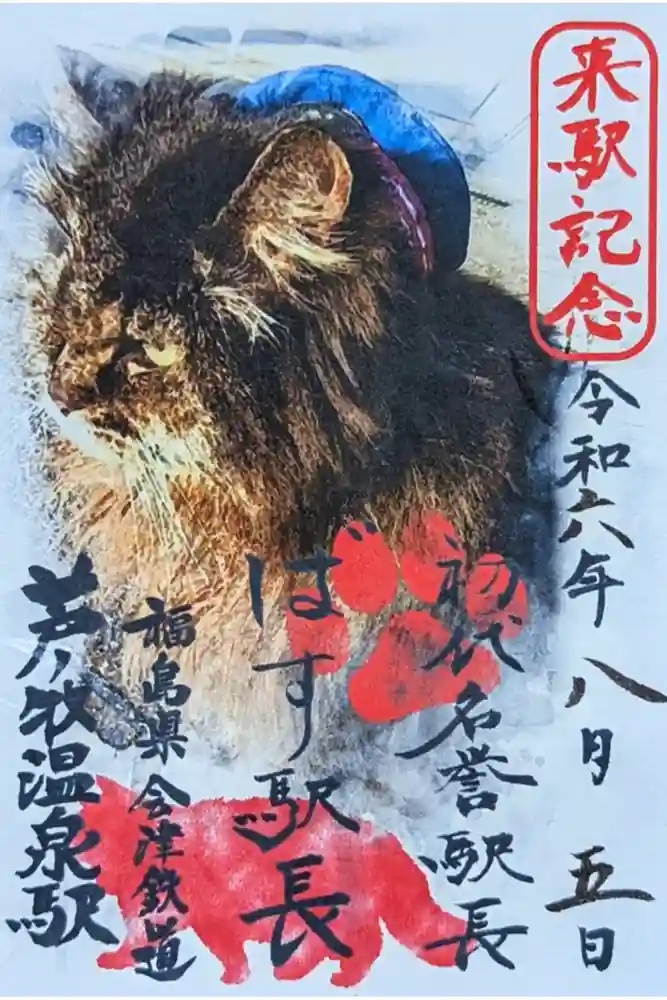 来駅記念
令和六年 八月 五日
初代名誉駅長
ばす駅長
福島県会津鉄道
芦ノ牧温泉駅